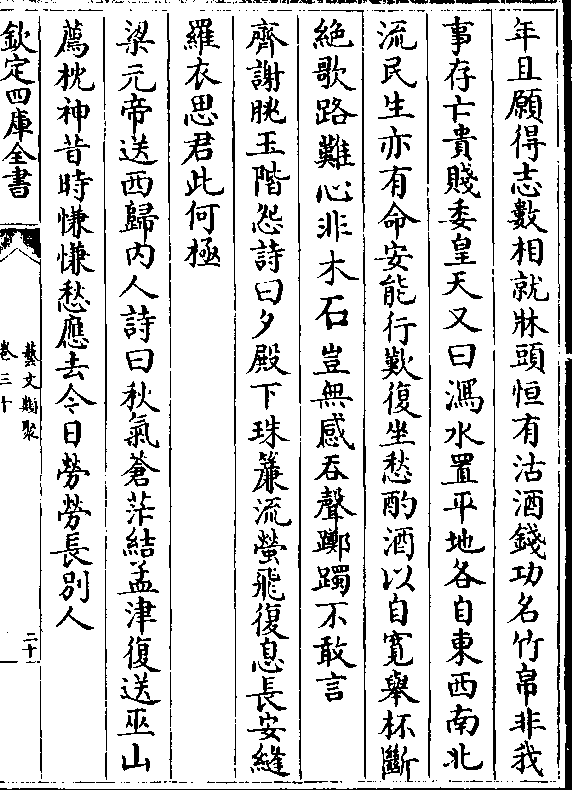 年且願得志數相就牀頭恒有沽酒錢功名竹帛非我
事存亡貴賤委皇天又曰瀉水置平地各自東西南北
流民生亦有命安能行歎復坐愁酌酒以自寛舉杯斷
絶歌路難心非木石豈無感吞聲躑躅不敢言
齊謝朓玉階怨詩曰夕殿下珠簾流螢飛復息長安縫
羅衣思君此何極
梁元帝送西歸内人詩曰秋氣蒼茫結孟津復送巫山
薦枕神昔時慊慊愁應去今日勞勞長別人
欽定四庫全書
藝文類聚
卷三十
二十